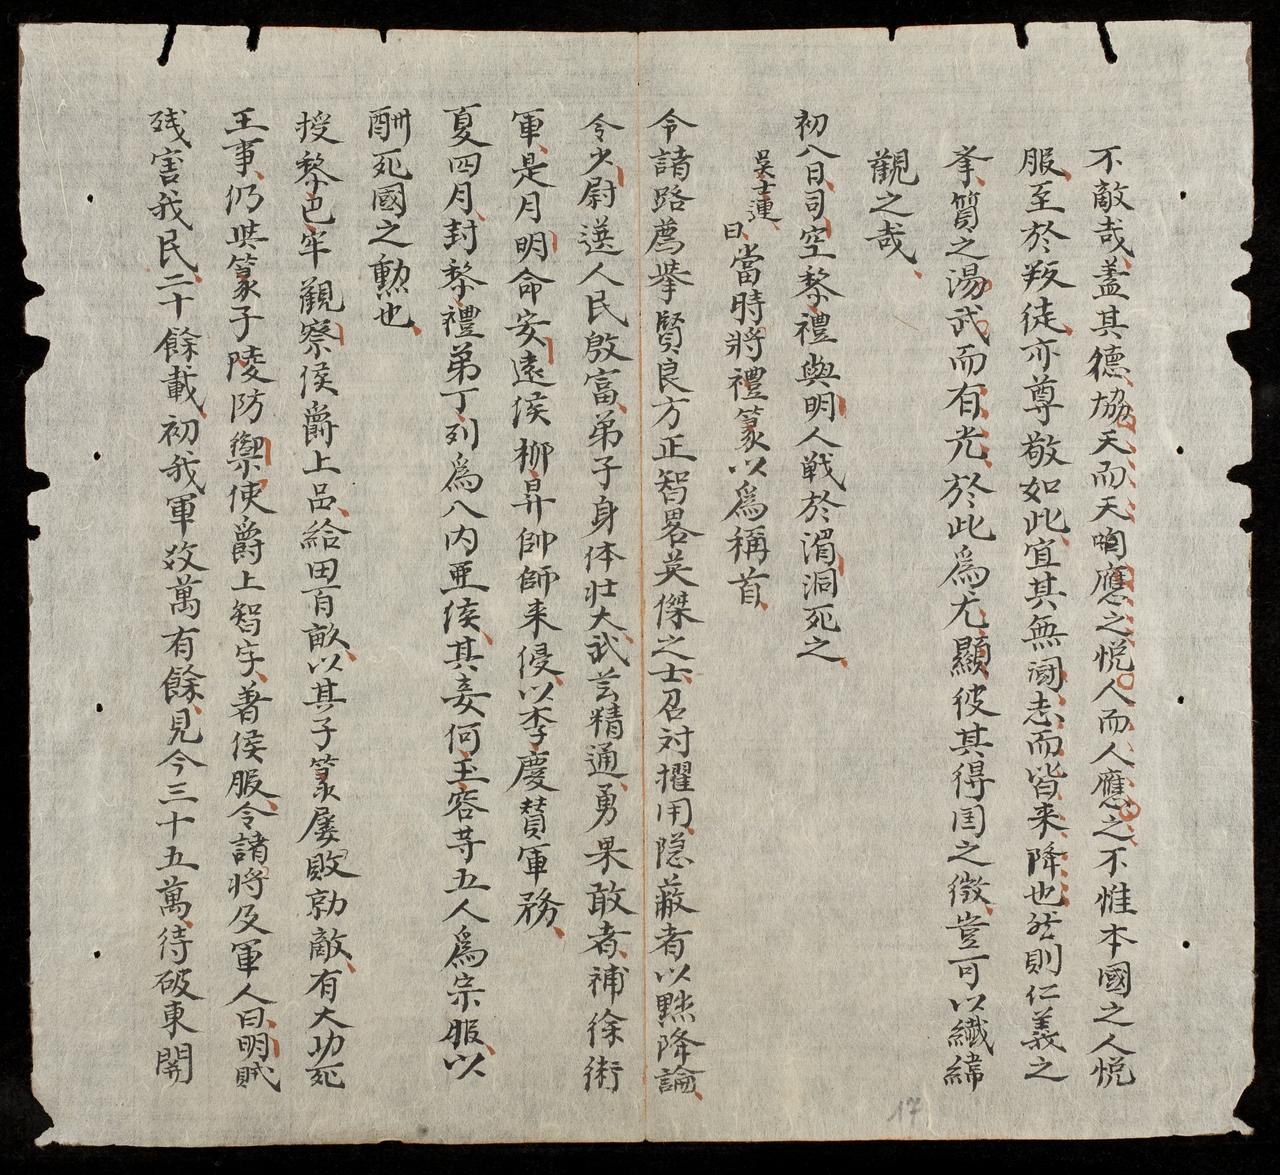 不敵哉盖其德協天而天啲應之悅人而人應之不惟本國之人悅
服至於叛徒亦尊敬如此宜其無鬪志而皆来降也然則仁義之
峯質之湯武而有光於此爲尤顯彼其得国之微豈可以纖緯
觀之哉
初八日司空黎禮與明人戦於湄洞死之
吳士連曰當時將禮篆以爲稱首
令諸路薦举賢良方正智畧英傑之士召対擢用隐蔽者以黜降論
令少尉選人民殷富弟子身体壮大武芸精通勇果敢者補徐術
軍是月明命安遠侯柳昇帥師来侵以李慶賛軍務
夏四月封黎禮弟丁列爲八内亜侯其妾何玉容䓁五人爲宗服以
酬死國之勲也
授黎巴牢觀察侯爵上品給田百畝以其子篆屡敗勍敵有大功死
王事仍其篆子陵防禦使爵上智字著侯服令諸將及軍人曰明賊
残害我民二十餘載初我軍数萬有餘見今三十五萬待破東關
17